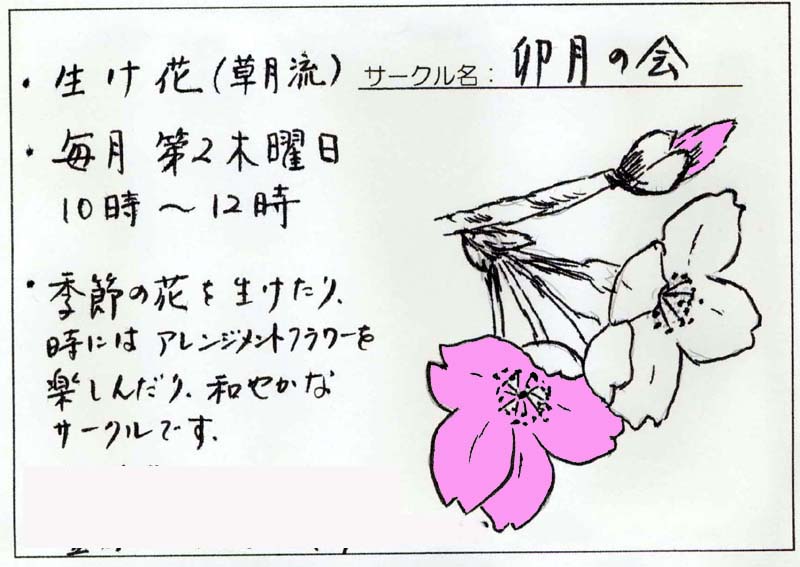 サークル名： 卯月の会
・生け花（草月流）
・毎月 第2木曜日
10時〜12時
・季節の花を生けたり、
時には アレンジメントフラワーを
楽しんだり、和やかな
サークルです。